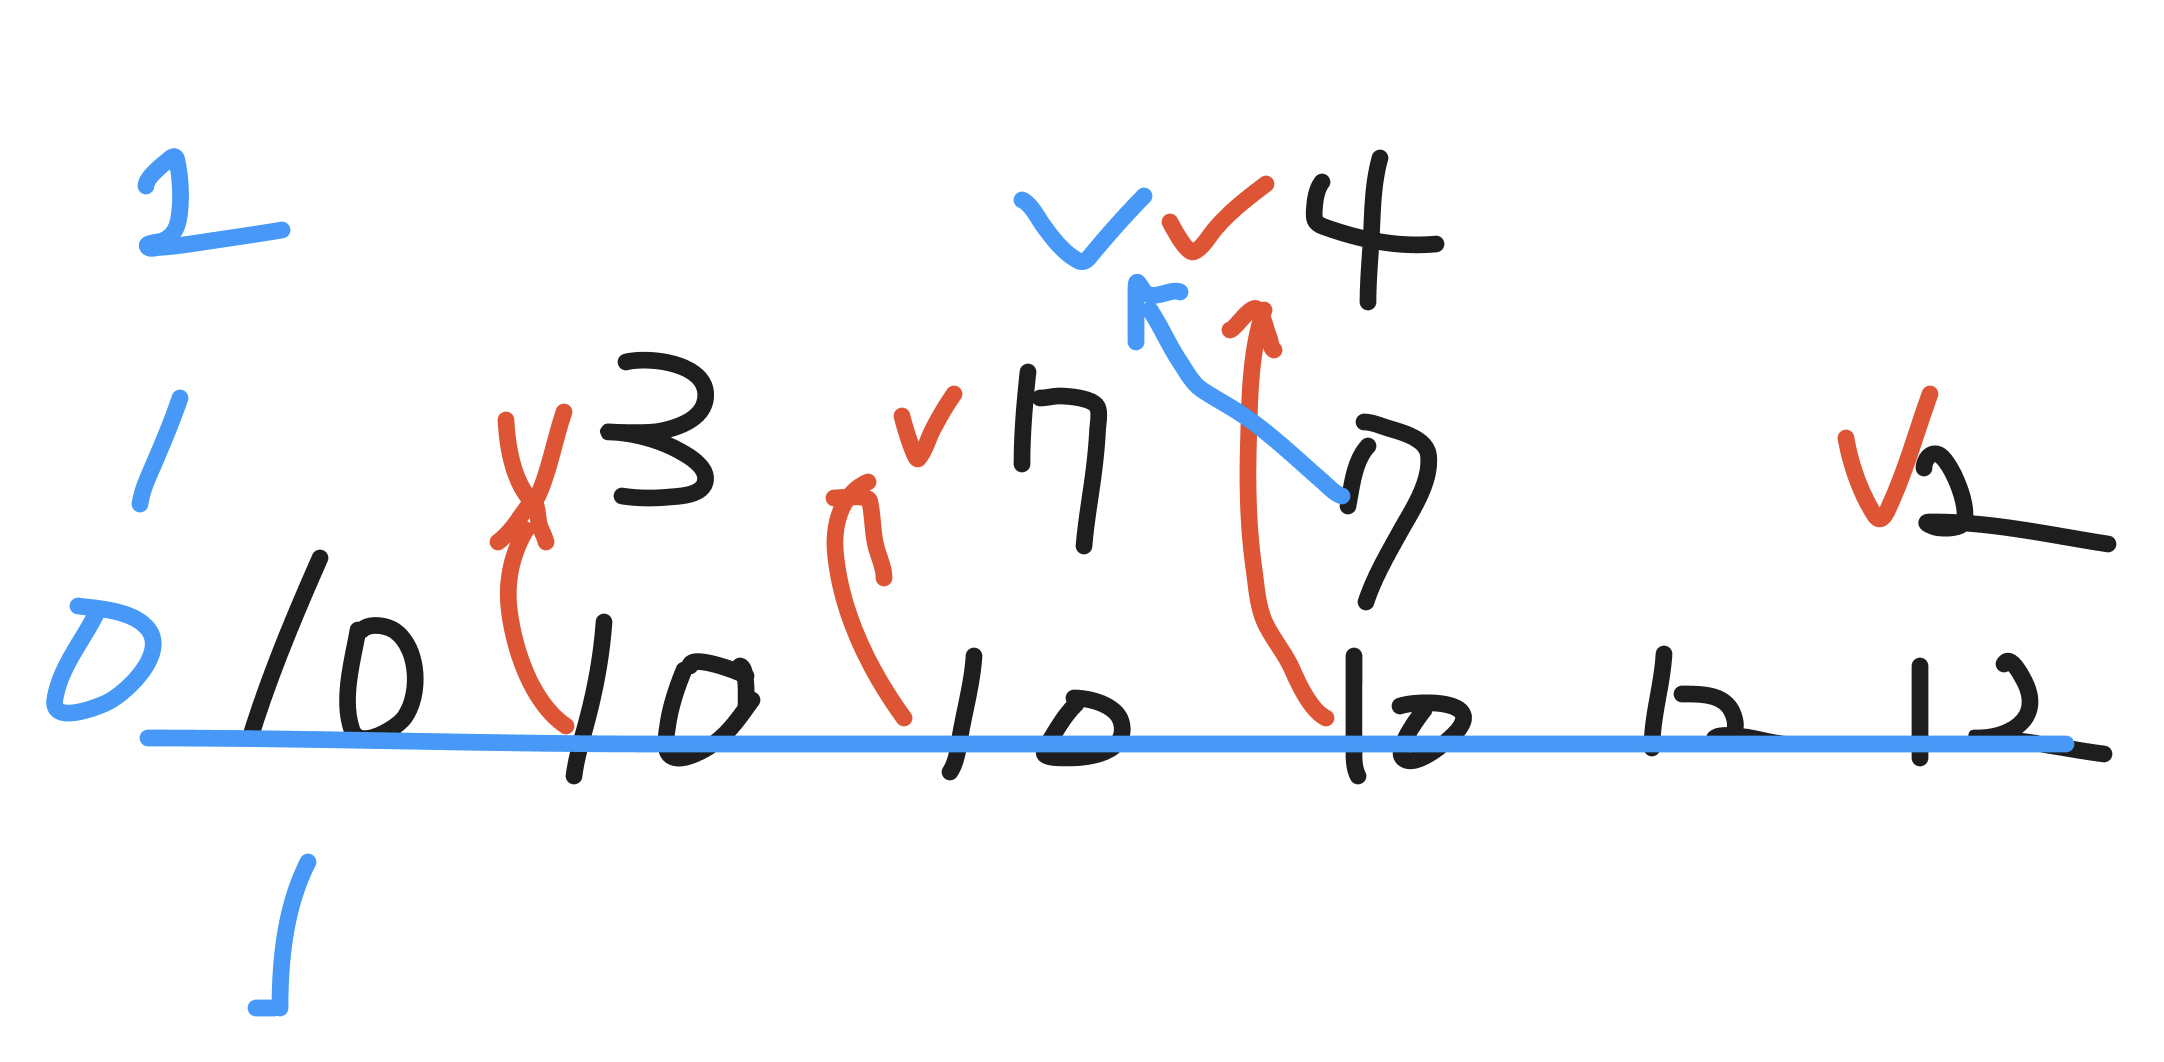 2 ✓ ✓ 4
1 3 ✓ 7 7 ✓ 2
0 10 10 10 10 12 12
1